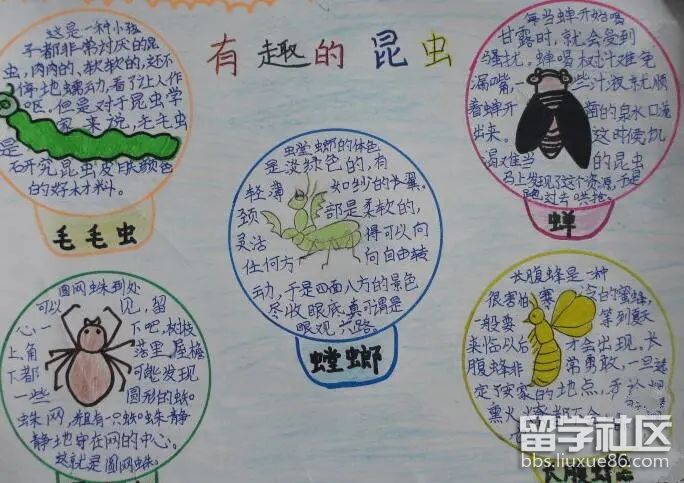 有趣的昆虫
这是一种小孩
子都非常讨厌的昆
虫，肉肉的、软软的，还不
停地蠕动，看了让人作
呕。但是对于昆虫学
家来说，毛毛虫
是
研究昆虫皮肤颜色
的好材料。
毛毛虫
每当蝉开始喝
甘露时，就会受到
骚扰。蝉喝树汁难免
漏嘴，些汁液就顺
着蝉开凿的泉水口淌
出来，这时候饥
渴难当的昆虫
马上发现了这个资源，于是
跑过去哄抢。
蝉
螳螂的体色
是淡绿色的，有
轻薄如纱的长翼。
颈部是柔软的，
灵活得可以向
任何方向自由转
动，于是四面八方的景色
尽收眼底，真可谓是
眼观六路。
螳螂
圆网蛛到处
可以见，留
心一下吧，树枝
上角落里，屋檐
下都可能发现
一些圆形的蛛
蛛网，并且有一只蜘蛛静
静地守在网的中心。
这就是圆网蛛。
长腹蜂是一种
很害怕寒冷的蜜蜂，
一般要等到夏天
来临以后才会出现。长
腹蜂非常勇敢，一旦选
定了安家的地点，
熏火烤都不会
长腹蜂
留学社区
bbs.liuxue86.com